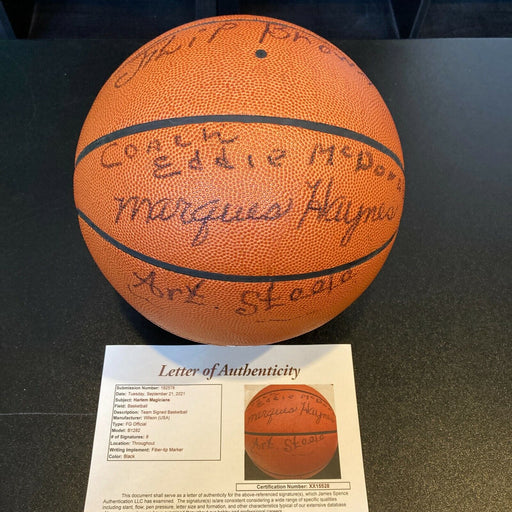 Coach
Eddie McDon
Marques Haynes
Art. Steele
Letter of Authenticity
Submission Number: 182578
Date: Tuesday, September 21, 2021
Subject: Harlem Magicians
Field: Basketball
Description: Team Signed Basketball
Manufacturer: Wilson (USA)
Type: FG Official
Model: B1282
# of Signatures: 8
Location: Throughout
Writing Implement: Fiber-tip Marker
Color: Black
Eddie McD
Marques Hayne
Art Steele
Certification Number: XX15528
This document shall serve as a letter of authenticity for the above-referenced signature(s), which James Spence
Authentication LLC has examined. The signature(s) is/are consistent considering a wide range of specific qualities
including slant, flow, pen pressure, letter size and formation, and other characteristics typical of our extensive database